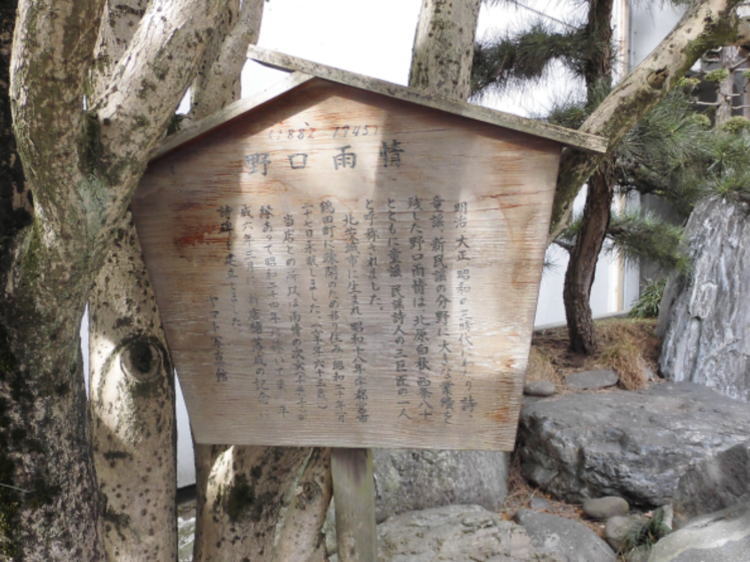 (1882-1945)
野口雨情
明治 大正 昭和の三時代にわたり 詩
童謡 新民謡の分野に大きな業績を
残した野口雨情は 北原白秋 西條八十
とともに童謡 民謡詩人の三巨匠の一人
と呼称されました。
北茨城市に生まれ 昭和十八年宇都宮市
鶴田町に疎開のため移り住み 昭和二十年一月
二十七日永眠しました。(六十三歳)
当店との
縁あって昭和二十四年
成六年三月に 新店舗落成の記念に
詩碑を建立しました。